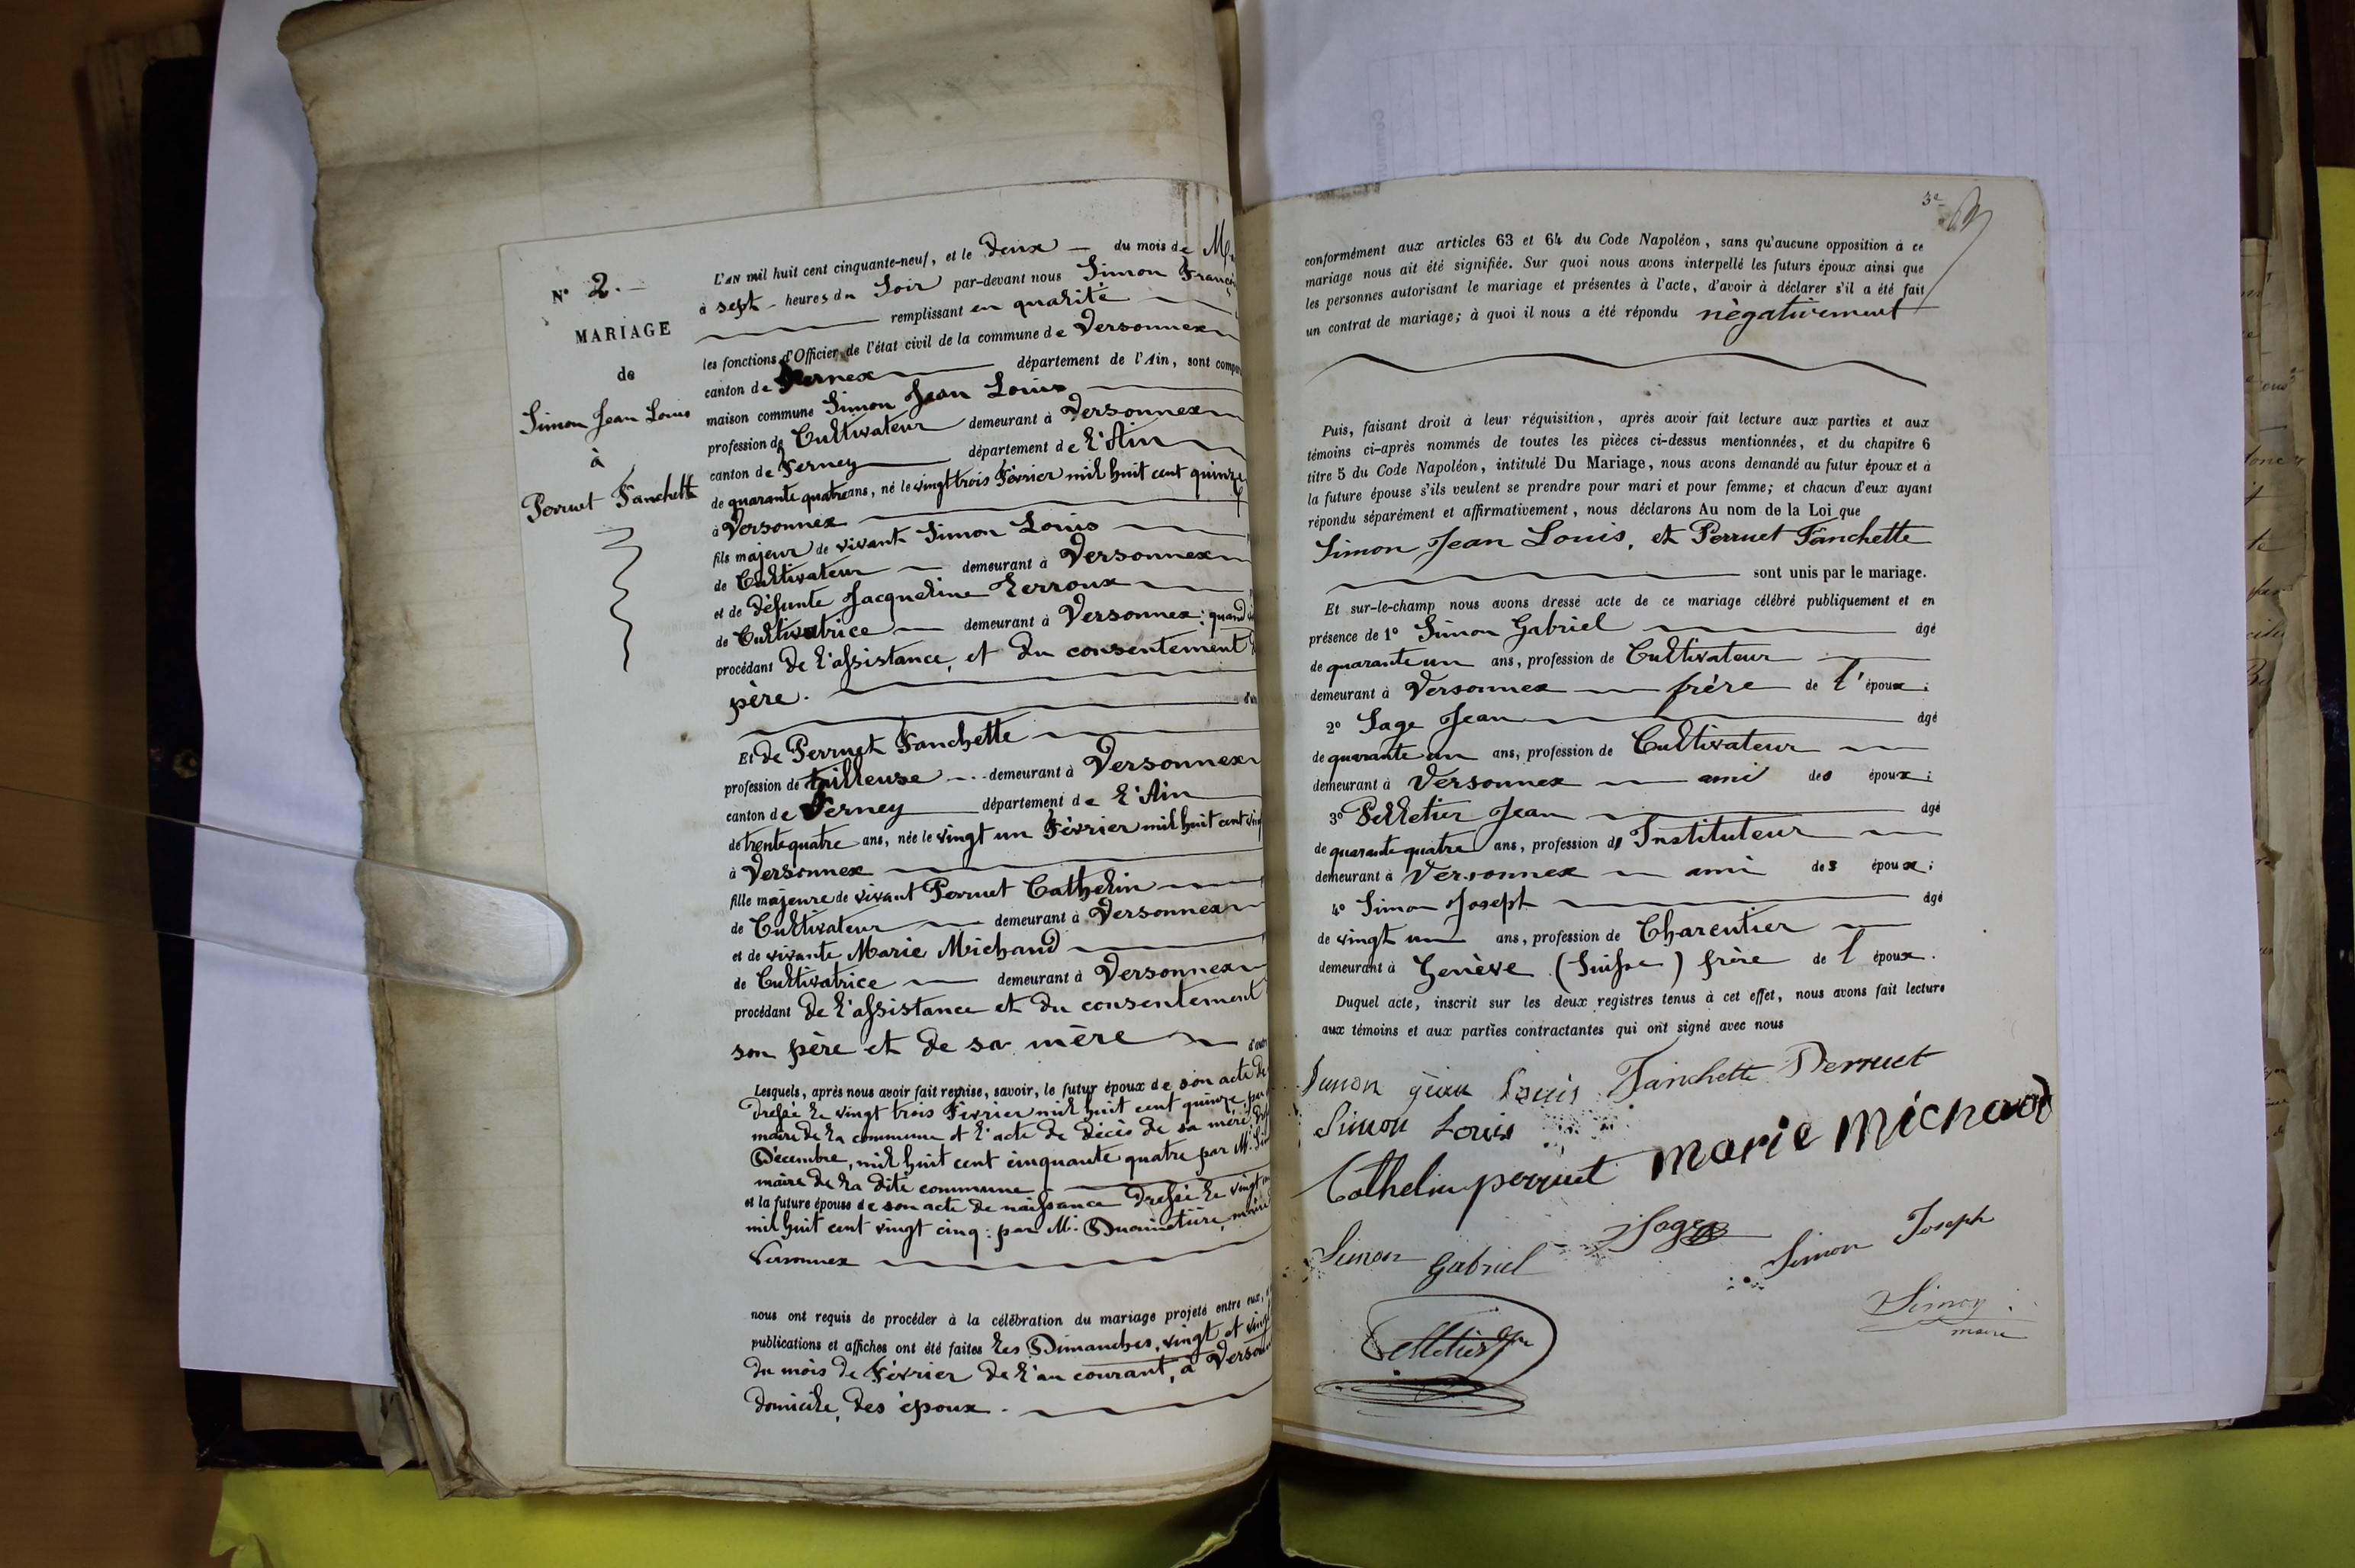 N° 2.
MARIAGE
de
Simon Jean Louis
à
Perruet Fanchette
L'AN mil huit cent cinquante-neuf, et le Deux du mois de
à sept heures du Soir par-devant nous Simon Franç
remplissant en qualité
les fonctions d'Officier de l'état civil de la commune de Versonnex
canton de département de l'Ain, sont comp
maison commune Simon Jean Louis
profession de Cultivateur demeurant à Versonnex
canton de Ferney département de l'Ain
de quarante quatre ans, né le vingt trois Février mil huit cent quinze
à Versonnex
fils majeur de vivant Simon Louis
de Cultivateur demeurant à Versonnex
et de défunte Jacqueline Lerroux
de Cultivatrice demeurant à Versonnex: quand
procédant de l'assistance, et du consentement
père.
Et de Perruet Fanchette
profession de tailleuse demeurant à Versonnex
canton de Ferney département de l'Ain
de trente quatre ans, née le vingt un Février mil huit cent
à Versonnex
fille majeure de vivant Perruet Cathelin
de Cultivateur demeurant à Versonnex
et de vivante Marie Michaud
de Cultivatrice demeurant à Versonnex
procédant de l'assistance et du consentement
son père et de sa mère
Lesquels, après nous avoir fait remise, savoir, le futur époux de son acte de
dressé le vingt trois Février mil huit cent quinze, par
maire de la commune et l'acte de décès de sa mère
Décembre, mil huit cent cinquante quatre par M.
maire de la dite commune
et la future épouse de son acte de naissance dressé le vingt
mil huit cent vingt cinq: par M.
Versonnex
nous ont requis de procéder à la célébration du mariage projeté entre eux,
publications et affiches ont été faites les Dimanches, vingt et vingt
du mois de Février de l'an courant, à Verson
domicile, des époux.
3e
conformément aux articles 63 et 64 du Code Napoléon, sans qu'aucune opposition à ce
mariage nous ait été signifiée. Sur quoi nous avons interpellé les futurs époux ainsi que
les personnes autorisant le mariage et présentes à l'acte, d'avoir à déclarer s'il a été fait
un contrat de mariage; à quoi il nous a été répondu nègativement
Puis, faisant droit à leur réquisition, après avoir fait lecture aux parties et aux
témoins ci-après nommés de toutes les pièces ci-dessus mentionnées, et du chapitre 6
titre 5 du Code Napoléon, intitulé Du Mariage, nous avons demandé au futur époux et à
la future épouse s'ils veulent se prendre pour mari et pour femme; et chacun d'eux ayant
répondu séparément et affirmativement, nous déclarons Au nom de la Loi que
Simon Jean Louis, et Perruet Fanchette
sont unis par le mariage.
Et sur-le-champ nous avons dressé acte de ce mariage célébré publiquement et en
présence de 1° Simon Gabriel âgé
de quarante un ans, profession de Cultivateur
demeurant à Versonnex frère de l'époux;
2° Sage Jean âgé
de quarante un ans, profession de Cultivateur
demeurant à Versonnex ami des époux;
3° Pelletier Jean âgé
de quarante quatre ans, profession d' Instituteur
demeurant à Versonnex ami des époux;
4° Simon Joseph âgé
de vingt un ans, profession de Charentier
demeurant à Genève (Suisse) frère de l époux.
Duquel acte, inscrit sur les deux registres tenus à cet effet, nous avons fait lecture
aux témoins et aux parties contractantes qui ont signé avec nous
Simon jean Louis Fanchette Perruet
Simon Louis
Cathelin perruet marie michaud
Simon Gabriel J Sage Simon Joseph
Simon
maire
Pelletier